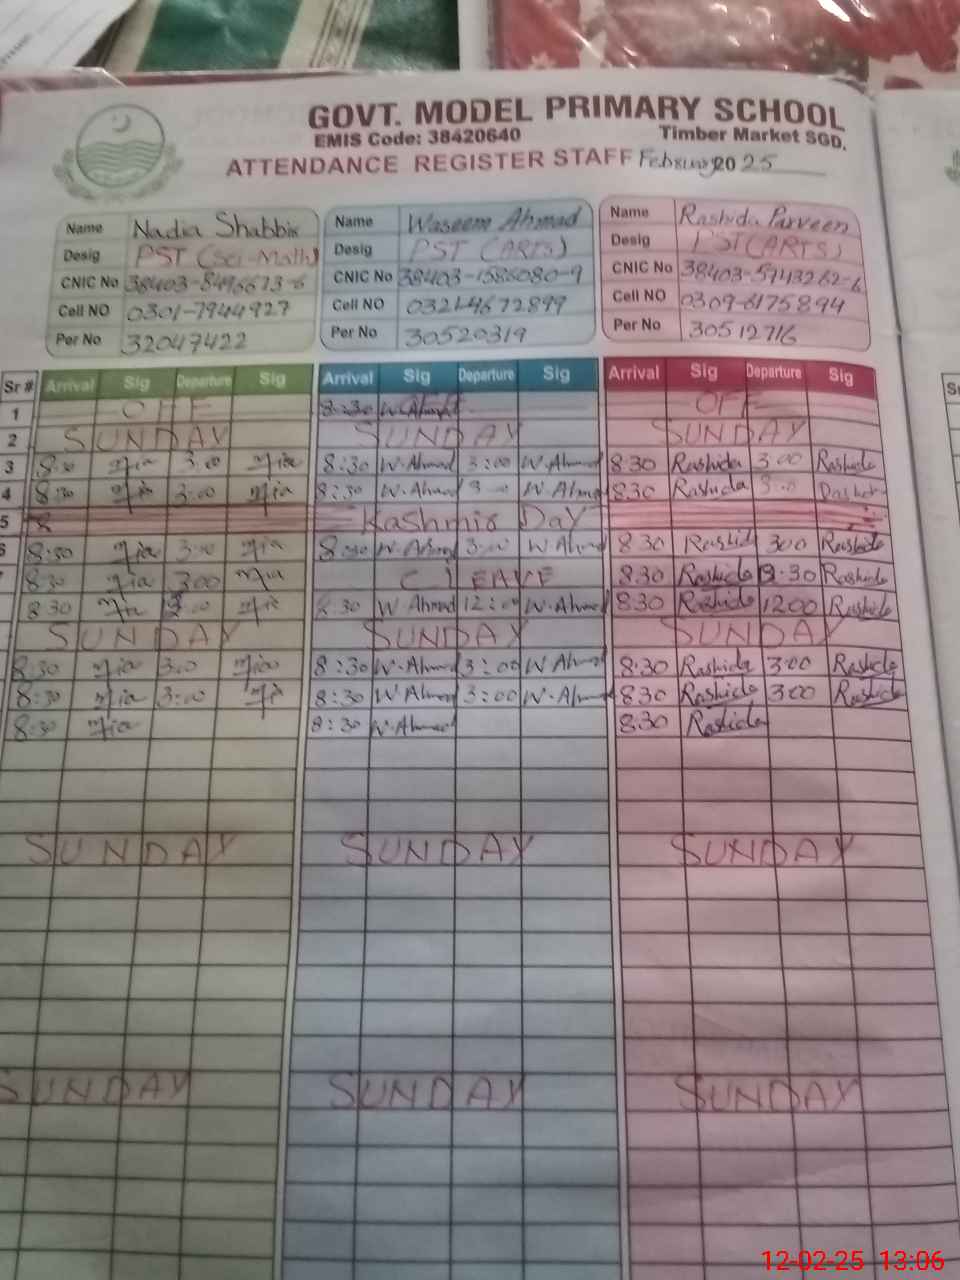 GOVT. MODEL PRIMARY SCHOOL
EMIS Code: 38420640 Timber Market SGD.
ATTENDANCE REGISTER STAFF 2025
Name Nadia Shabbir Name Waseem Ahmad Name Rashida Parveen
Desig PST (Sci-Math) Desig PST (ARTS) Desig PST (ARTS)
CNIC No CNIC No 38403-1586080-9 CNIC No
Cell NO 0301-7944927 Cell NO 03214672899 Cell NO 0309-6175894
Per No 32047422 Per No 30520319 Per No 30512716
Sr # Arrival Sig Departure Sig Arrival Sig Departure Sig Arrival Sig Departure Sig
1 OFF 8:30 W.Ahmad OFF
2 SUNDAY SUNDAY SUNDAY
3 8:30 3:00 8:30 W.Ahmad 3:00 W.Ahmad 8:30 Rashida 3:00 Rashida
4 8:30 3:00 8:30 W.Ahmad W.Ahmad 8:30 Rashida
5 8 Kashmir Day
6 8:30 3:00 W.Ahmad 3:00 W.Ahmad 8:30 Rashid 300 Rashida
8:30 300 C LEAVE 8:30 Rashida Rashida
8:30 8:30 W.Ahmad 12:00 W.Ahmad 8:30 Rashida 1200 Rashida
SUNDAY SUNDAY SUNDAY
8:30 3:00 8:30 W.Ahmad 3:00 W Ahmad 8:30 Rashida 3:00 Rashida
8:30 3:00 8:30 W.Ahmad 3:00 W.Ahmad 8:30 Rashida 300 Rashida
8:30 8:30 W.Ahmad 830 Rashida
SUNDAY SUNDAY SUNDAY
SUNDAY SUNDAY SUNDAY
12-02-25 13:06